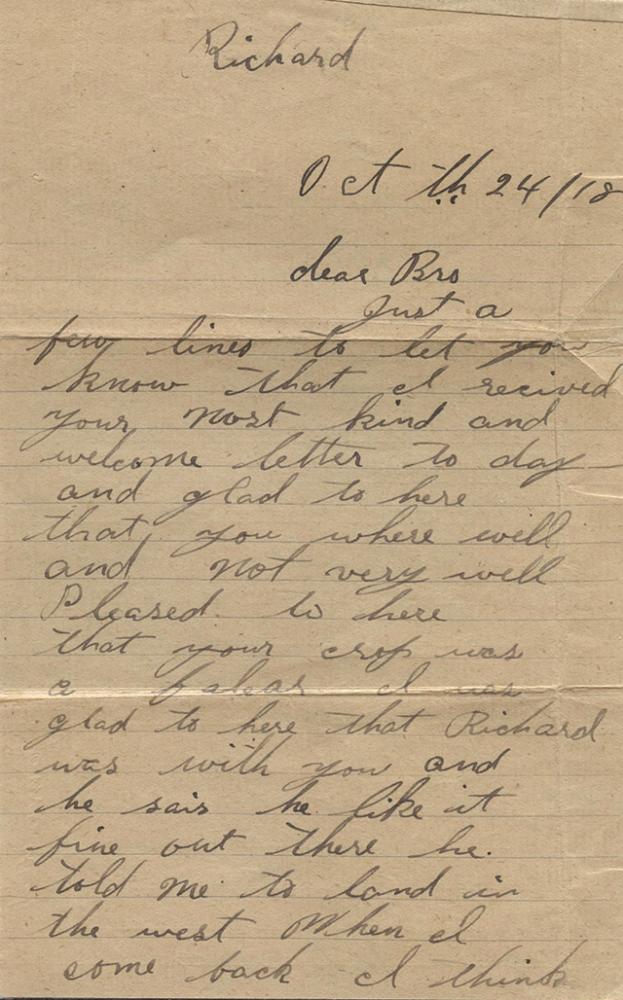 Richard
Oct th 24/18
dear Bro
Just a
few lines to let you
know that I recived
your most kind and
welcome letter to day
and glad to here
that you where well
and not very well
Pleased to here
that your crop was
a falear I was
glad to here that Richard
was with you and
he sais he like it
fine out there he.
told me to land in
the west When I
come back I think